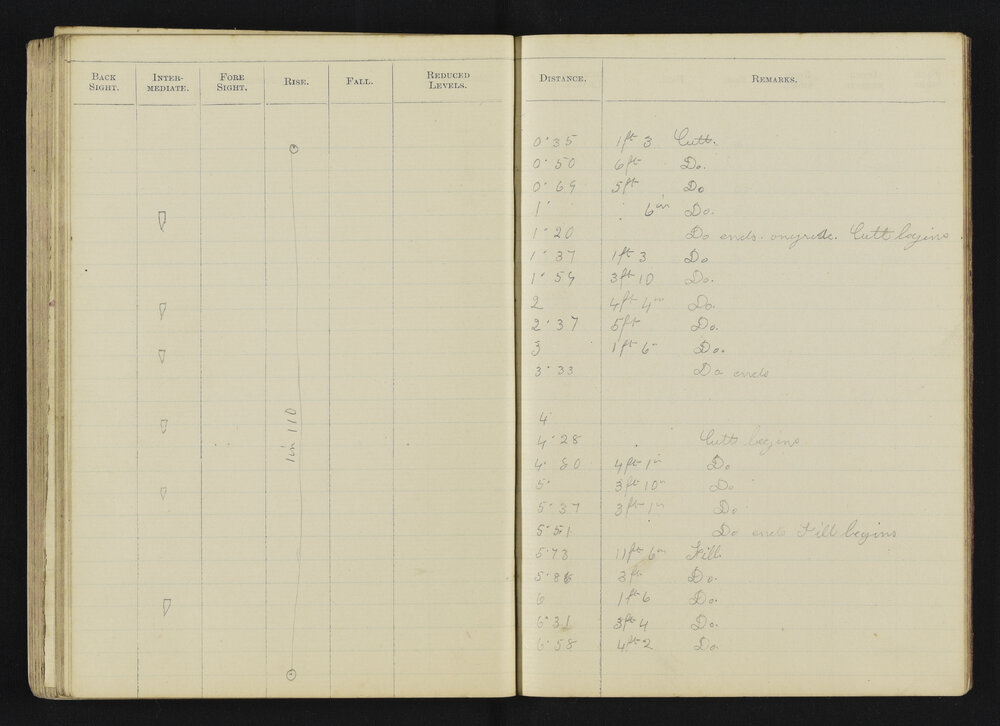 BACK SIGHT. INTER-MEDIATE. FORE SIGHT. RISE. FALL. REDUCED LEVELS.
1 in 110
DISTANCE. REMARKS.
0·35 1ft 3 Cutt.
0·50 6ft Do.
0·69 5ft Do
1· 6in Do.
1·20 Do ends. ongrade. Cutt begins
1·37 1ft 3 Do
1·54 3ft 10 Do.
2 4ft 4in Do.
2·37 5ft Do.
3 1ft 6 Do.
3·33 Do ends
4
4·28 Cutt begins
4·80 4ft 1in Do
5· 3ft 10in Do
5·37 3ft 1in Do
5·51 Do ends Fill begins
5·73 11ft 6in Fill
5·86 3ft Do.
6 1ft 6 Do.
6·31 3ft 4 Do.
6·58 4ft 2 Do